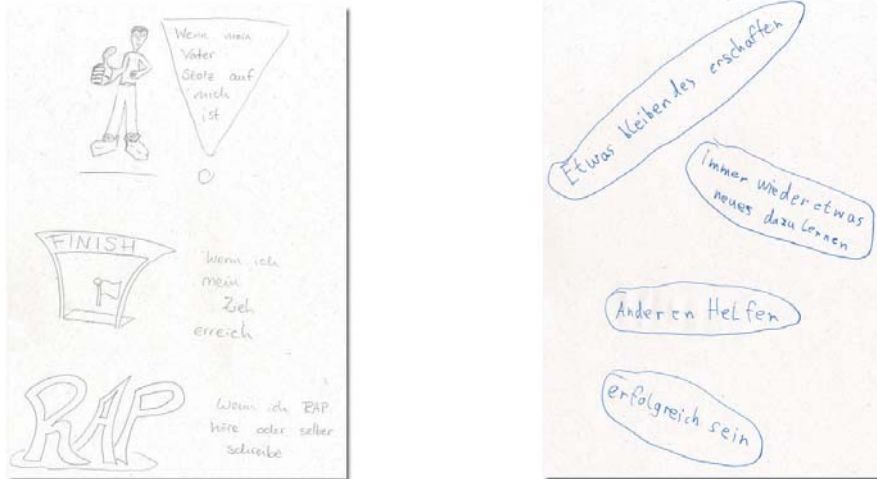 Wenn mein
Vater
Stolz auf
mich
ist
FINISH
F
Wenn ich
mein
Ziel
erreich
RAP
Wenn ich RAP
höre oder selber
schreibe
Etwas bleibendes erschaffen
immer wieder etwas
neues dazu lernen
Anderen Helfen
erfolgreich sein